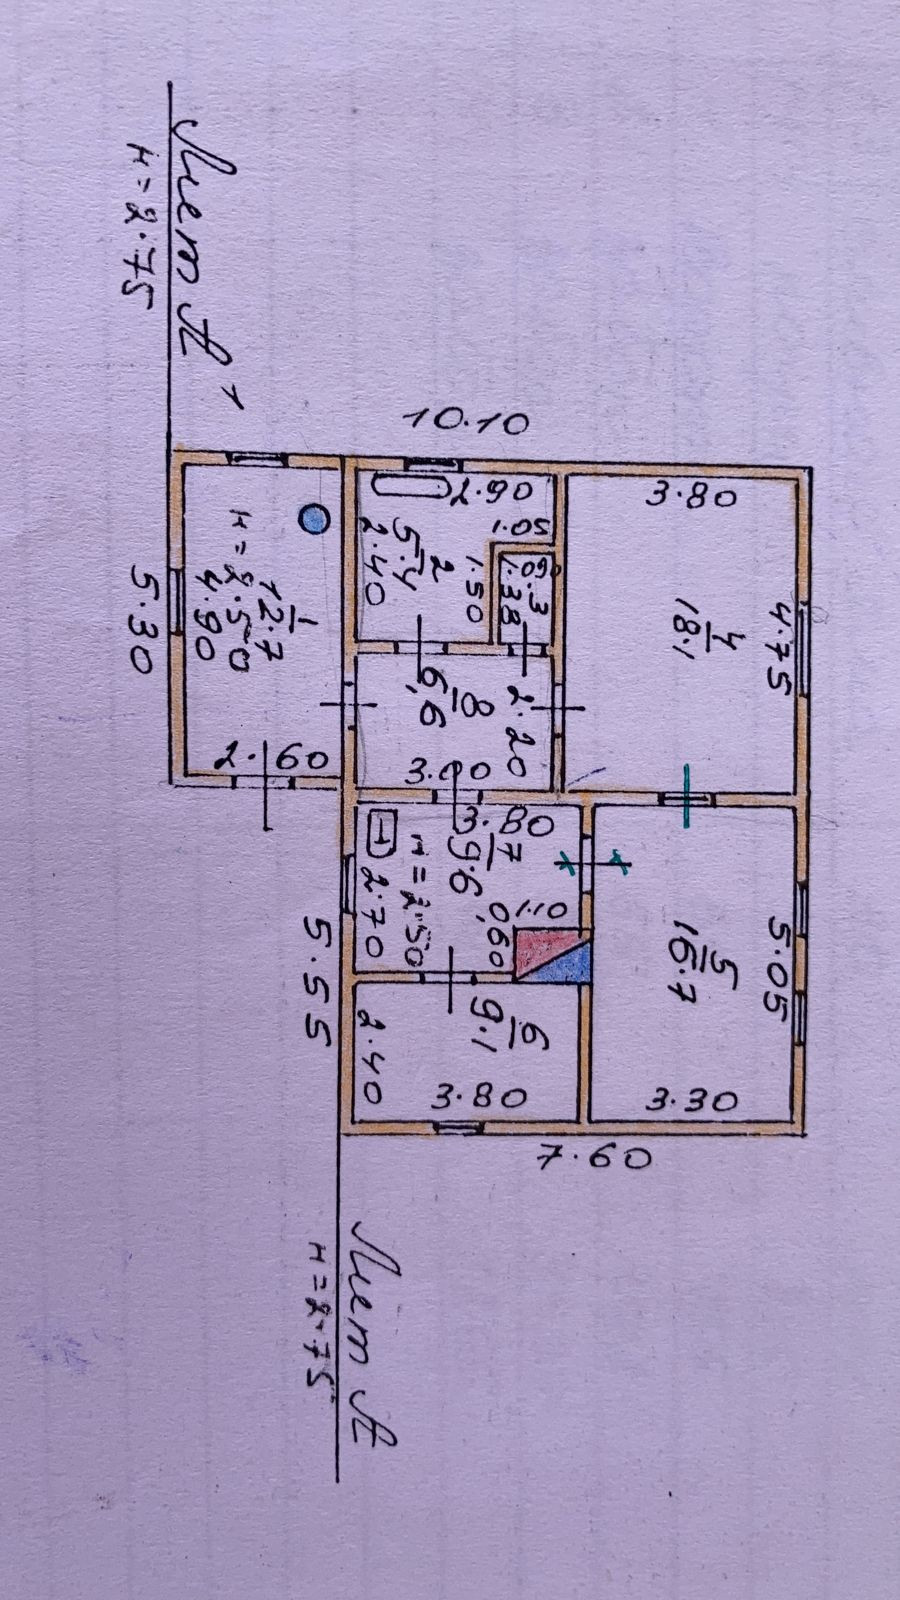 Лит А¹
н=2.75
10.10
5.30
1
12.7
н=2.50
4.90
2.60
2.90
2
5.4
2.40
1.05
1.50
0.90
3
1.38
3.80
4
18.1
4.75
8
6,6
2.20
3.00
3.80
7
9.6
н=2.50
2.70
1.10
0,60
5
16.7
5.05
3.30
6
9.1
2.40
3.80
5.55
7.60
Лит А
н=2.75